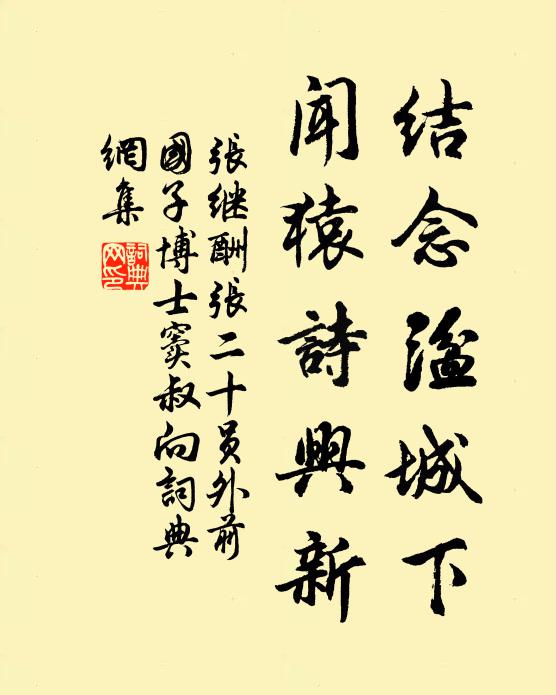 结念溢城下
闻猿詩興新
張继酬張二十员外前
國子博士窦叔向詞典
網集
詞典
网印